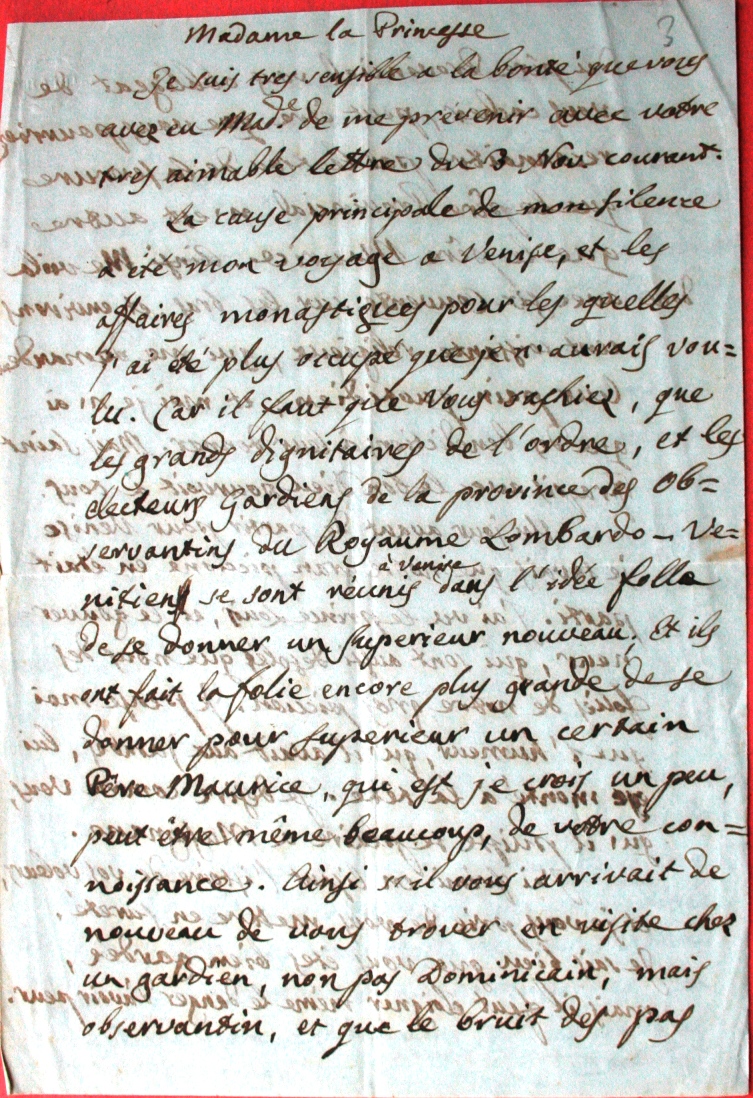 3
Madame la Princesse
Je suis tres sensible a la bonté que vous
avez eu Mad.e de me prevenir avec votre
tres aimable lettre du 3 Nov. courant.
La cause principale de mon silence
a été mon voyage a Venise, et les
affaires monastiques pour les quelles
j'ai été plus occupé que je n'aurais vou=
lu. Car il faut que Vous sachiez, que
les grands dignitaires de l'ordre, et les
electeurs Gardiens de la province des Ob=
servantins du Royaume Lombardo-Ve=
nitien se sont réunis à Venise dans l'idée folle
de se donner un Superieur nouveau; Et ils
ont fait la folie encore plus grande de se
donner pour Superieur un certain
Père Maurice, qui est je crois un peu,
peut être même beaucoup, de votre con=
noissance. Ainsi s'il vous arrivait de
nouveau de vous trover en visite chez
un gardien, non pas Dominicain, mais
observantin, et que le bruit des pas